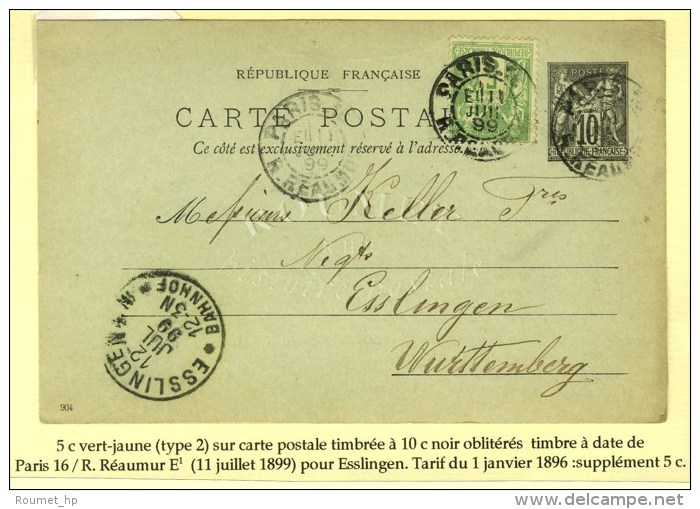 RÉPUBLIQUE FRANÇAISE
CARTE POSTAL
Ce côté est exclusivement réservé à l'adresse.
POSTE
10
PARIS
JUIL
99
R. RÉAUMUR
PARIS
99
R. RÉAUMUR
Messieurs Keller Frères
Negts
Esslingen
Württemberg
ESSLINGEN
12
JUL
99
12-3N
BAHNHOF
904
5 c vert-jaune (type 2) sur carte postale timbrée à 10 c noir oblitérés timbre à date de
Paris 16 / R. Réaumur E¹ (11 juillet 1899) pour Esslingen. Tarif du 1 janvier 1896 :supplément 5 c.
© Roumet_hp
delcampe.net